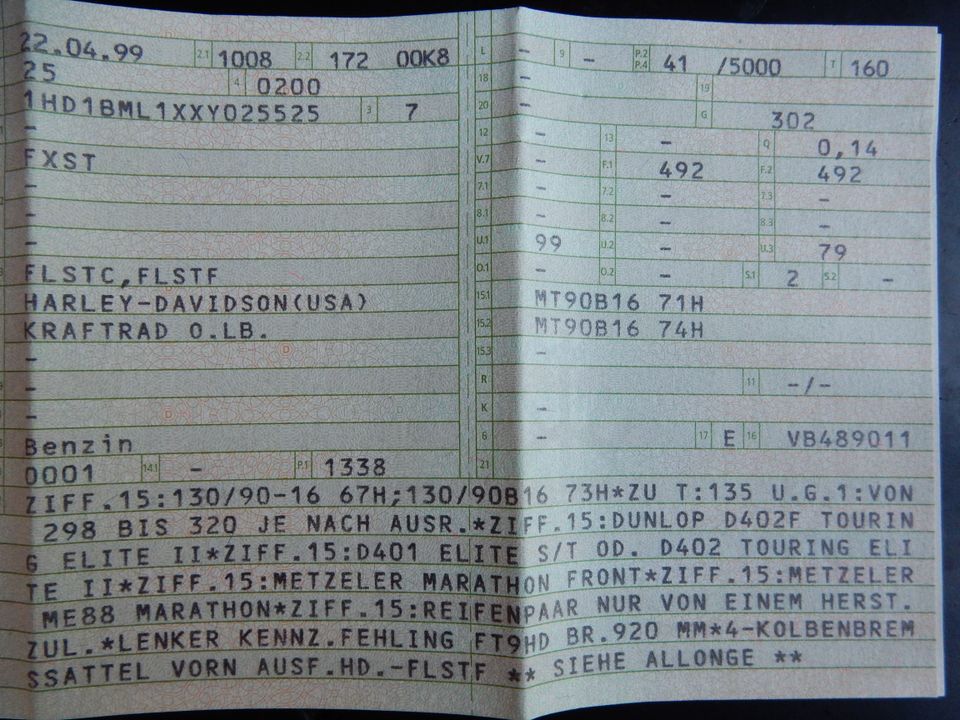 22.04.99 2.1 1008 2.2 172 00K8 L - 9 - P.2 P.4 41 /5000 T 160
25 4 0200 18 - 19
1HD1BML1XXY025525 3 7 20 - G 302
- 12 - 13 - Q 0,14
FXST V.7 - F.1 492 F.2 492
- 7.1 - 7.2 - 7.3 -
- 8.1 - 8.2 - 8.3 -
- U.1 99 U.2 - U.3 79
FLSTC,FLSTF O.1 - O.2 - S.1 2 S.2 -
HARLEY-DAVIDSON(USA) 15.1 MT90B16 71H
KRAFTRAD O.LB. 15.2 MT90B16 74H
- 15.3 -
- R 11 -/-
- K -
Benzin 6 - 17 E 16 VB489011
0001 14.1 - P.1 1338 21
ZIFF.15:130/90-16 67H;130/90B16 73H*ZU T:135 U.G.1:VON
298 BIS 320 JE NACH AUSR.*ZIFF.15:DUNLOP D402F TOURIN
G ELITE II*ZIFF.15:D401 ELITE S/T OD. D402 TOURING ELI
TE II*ZIFF.15:METZELER MARATHON FRONT*ZIFF.15:METZELER
ME88 MARATHON*ZIFF.15:REIFENPAAR NUR VON EINEM HERST.
ZUL.*LENKER KENNZ.FEHLING FT9HD BR.920 MM*4-KOLBENBREM
SSATTEL VORN AUSF.HD.-FLSTF ** SIEHE ALLONGE **